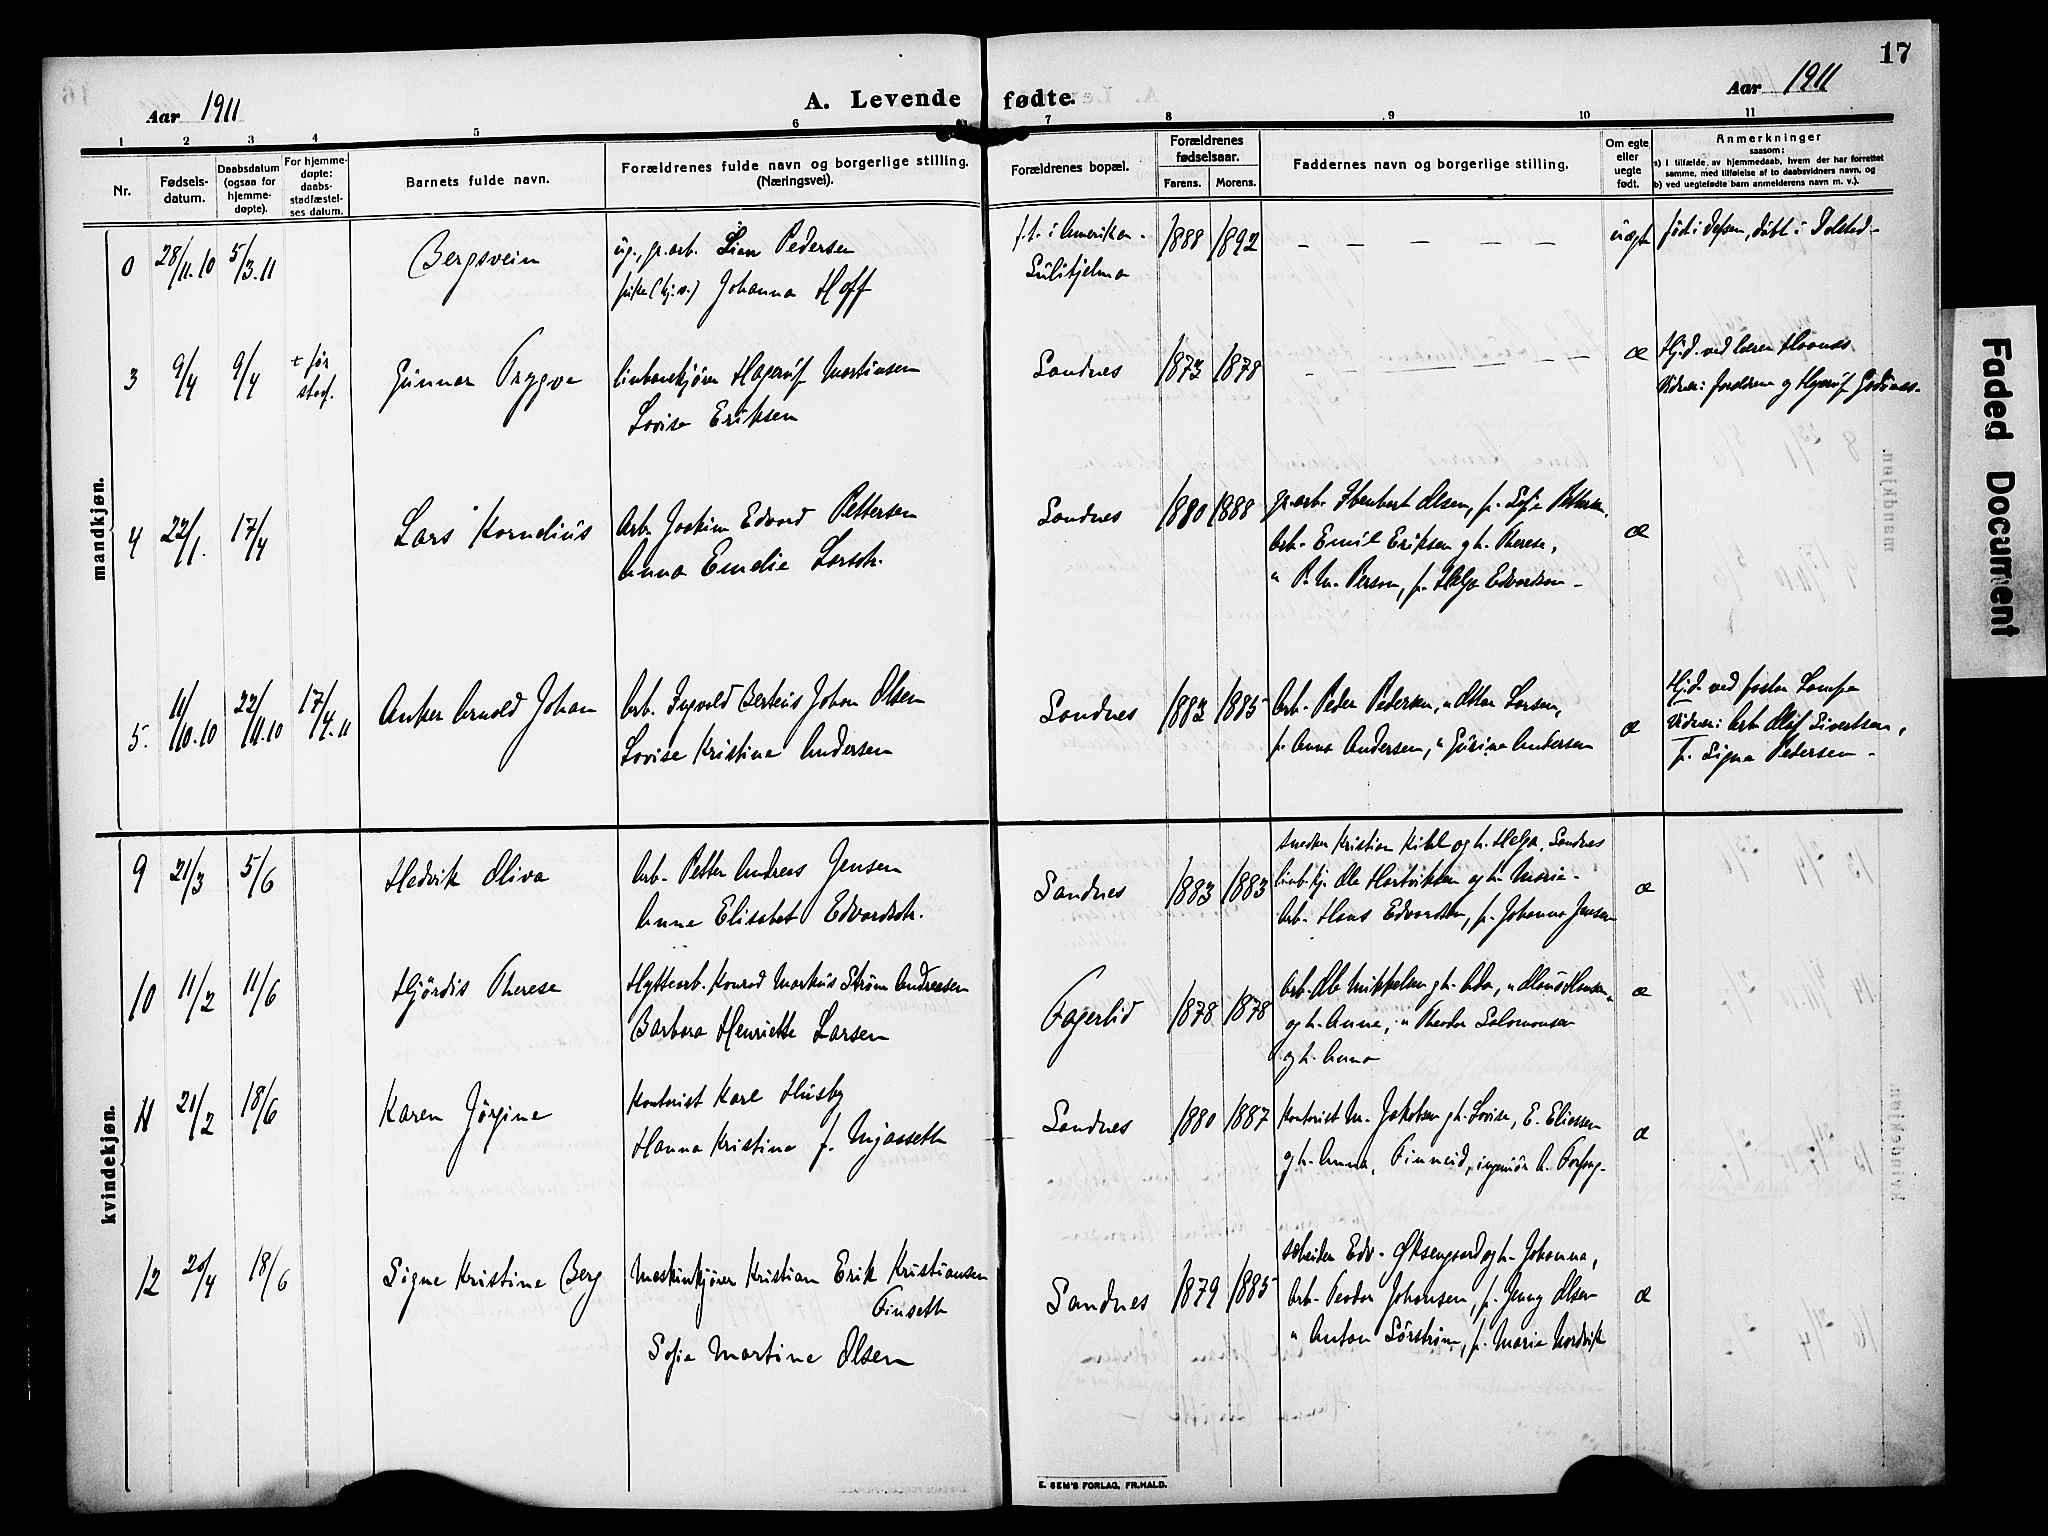 17
Aar 1911
A. Levende fødte.
Aar 1911
1 2 3 4 5 6 7 8 9 10 11
Nr.
Fødsels-
datum.
Daabsdatum
(ogsaa for
hjemme-
døpte).
For hjemme-
døpte:
daabs-
stadfæstel-
ses datum.
Barnets fulde navn.
Forældrenes fulde navn og borgerlige stilling.
(Næringsvei).
Forældrenes bopæl.
Forældrenes
fødselsaar.
Farens. Morens.
Faddernes navn og borgerlige stilling.
Om egte
eller
uegte
født.
Anmerkninger
saasom:
a) I tilfælde av hjemmedaab, hvem der har forrettet
samme, med tilføielse af to daabsvidners navn, og
b) ved uegtefødte barn anmelderens navn m. v.).
mandkjøn.
0 28/11.10 5/3.11 Bergsvein
ug., gr.arb. Pedersen
Johanna Hoff
f.t. i Amerika -
Sulitjelma
1888 1892
uægte
født i Vefsen, døbt i Dolstad -
3 9/4 9/4 + før
stadf.
Gunnar Trygve
linbanekjører Hagerúf Martinsen
Lovise Eriksen
Sandnes 1873 1878
æ
Hj.d. ved lærer
Vidner: forældrene og
4 22/1. 17/4 Lars Kornelius
Arb. Joakim Edvard Pettersen
Anna Emelie Larsdtr.
Sandnes 1880 1888
gr.arb. Olsen, p. Sofie Pettersen,
Arb. Emil Eriksen og h. Therese,
" P. M. Person, p. Helga Edvardsen -
æ
5. 11/10.10 22/11.10 17/4.11
Anker Arnold Johan
Arb. Ingvald Berteus Johan Olsen
Lovise Kristine Andersen
Sandnes 1883 1885
Arb. Peder Pedersen, " Oskar Larsen,
p. Anna Andersen, " Gurine Andersen
æ
Hj.d. ved pastor Lampe
Vidner: Arb. Olaf Sivertsen,
p. Signe Pedersen -
kvindekjøn.
9 21/3 5/6 Hedvik Oliva
Arb. Petter Andreas Jensen
Anne Elisabet Edvardsdtr.
Sandnes 1883 1883
snedker Kristian Kihl og h. Helga, Sandnes
linb.kj. Ole Hartviksen og h. Marie -
Arb. Hans Edvardsen, p. Johanna Jensen
æ
10 11/2 11/6 Hjördis Therese
Hyttearb. Konrad Markús Strøm Andreasen
Barbara Henriette Larsen
Fagerlid 1878 1878
Arb. Ole Mikkelsen og h. Ada, " Olaus Hansen
og h. Anna, " Theodor Salomonsen
og h. Anna
æ
11 21/2 18/6 Karen Jörgine
Kontorist Karl Húsby
Hanna Kristine f. Mjaaseth
Sandnes 1880 1887
Kontorist M. Jakobsen og h. Lovise, E. Eliassen
og h. Anna, Finneid, ingeniör A. Forfang -
æ
12 20/4 18/6 Signe Kristine Berg
Maskinkjörer Kristian Erik Kristiansen
Finseth
Sofie Martine Olsen
Sandnes 1879 1885
Edv. Øksengaard og h. Johanna,
Arb. Peodor Johansen, p. Jenny Olsen
" Anton Sörström, p. Marie Nordvik
æ
E. SEM'S FORLAG, FR.HALD.
Faded Document